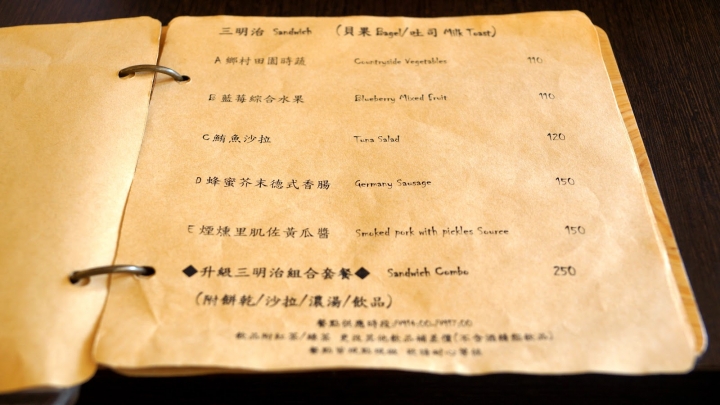 三明治 Sandwich （貝果 Bagel/吐司 Milk Toast）
A 鄉村田園時蔬 Countryside Vegetables 110
B 藍莓綜合水果 Blueberry Mixed Fruit 110
C 鮪魚沙拉 Tuna Salad 120
D 蜂蜜芥末德式香腸 Germany Sausage 150
E 煙燻里肌佐黃瓜醬 Smoked pork with pickles Source 150
◆升級三明治組合套餐◆ Sandwich Combo 250
（附餅乾/沙拉/濃湯/飲品）
餐點供應時段/
飲品附紅茶/綠茶 更換其他飲品補差價(不含酒精類飲品)
餐點皆現點現做 敬請耐心等候